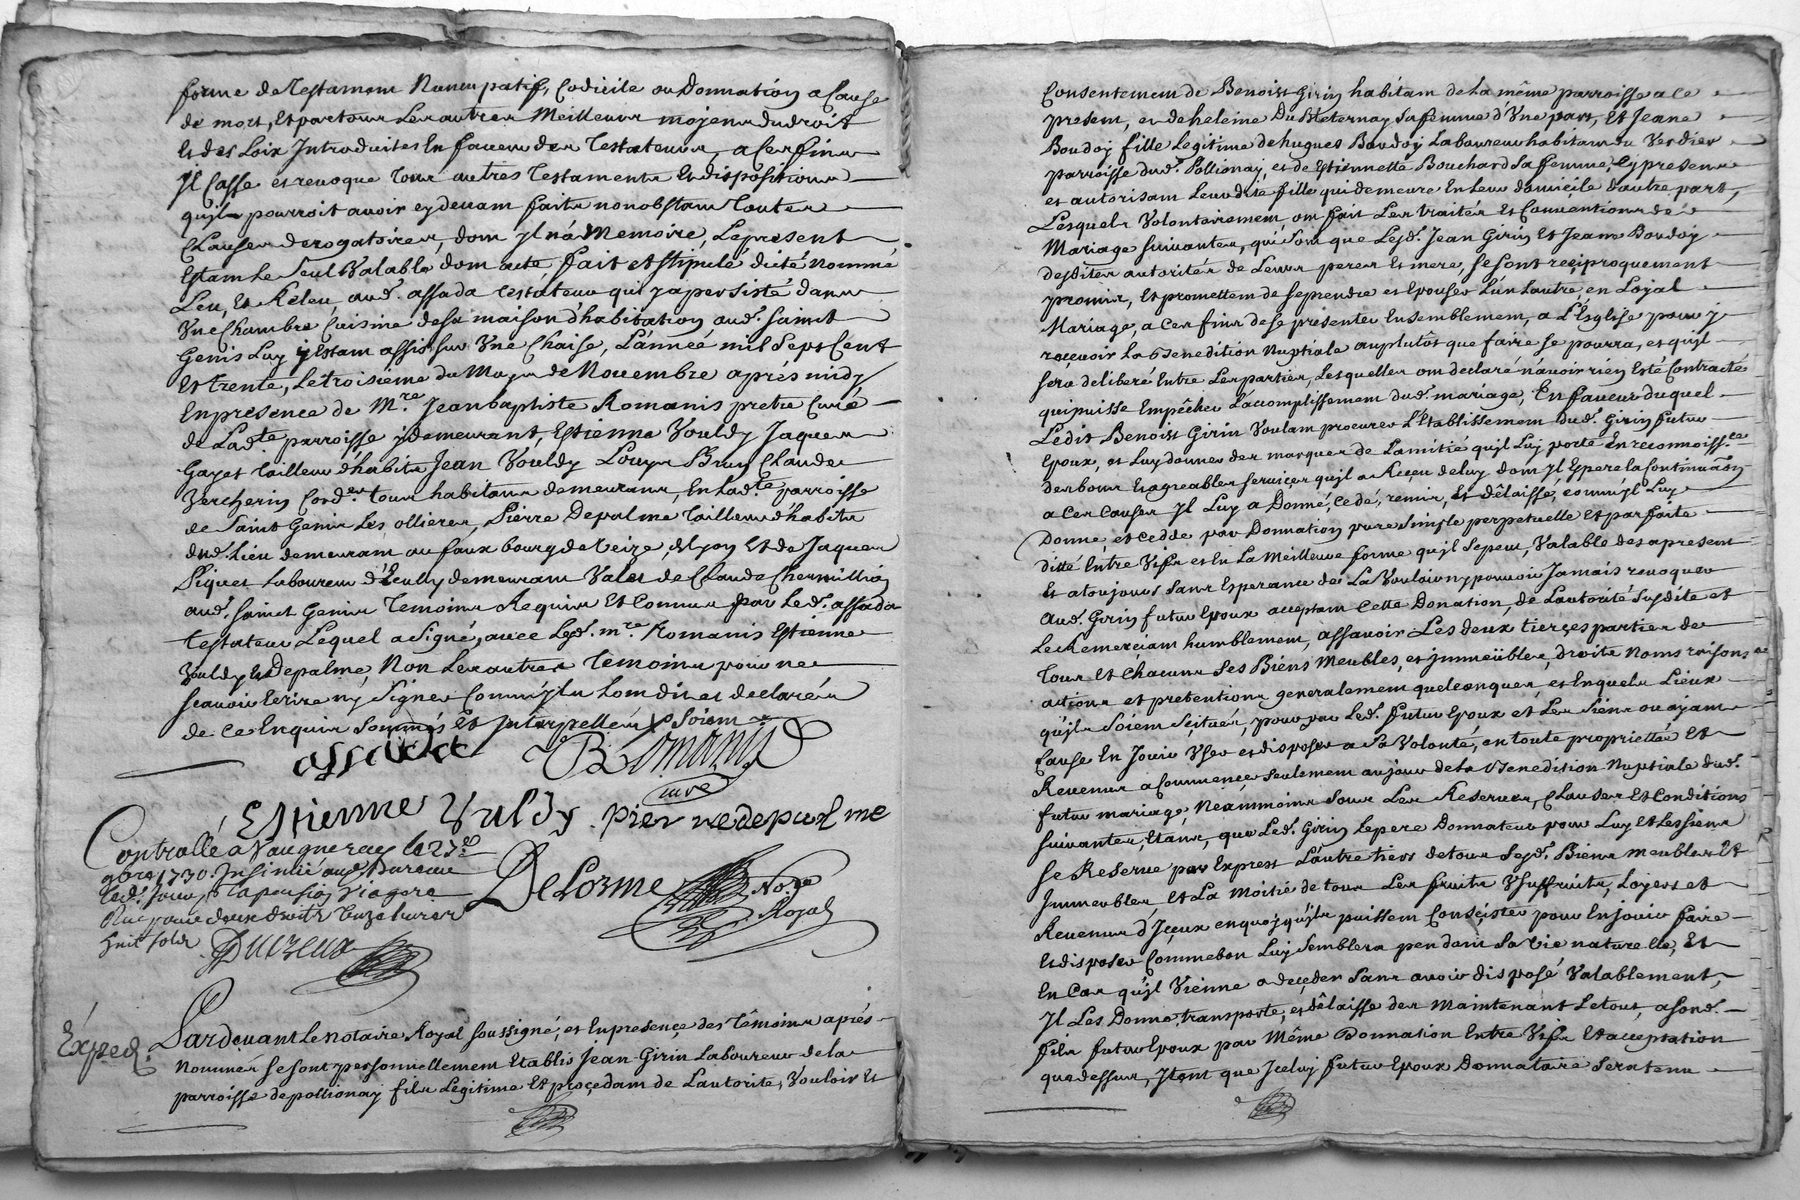 forme de Testament Nuncupatif, Codicile ou Donnation a Cause
de mort, Et par tous Les autres Meilleurs moyens du droit
Et des Loix Introduites En faveur des Testateurs, a Ces fins
Jl Casse et revoque Tous autres Testaments Et dispositions
qu'jl pourroit avoir cy devant faits nonobstant Toutes
Clauses derogatoires, dont Jl n'a Memoire, Le present
Estant Le Seul Valable dont acte, fait et stipulé dicté nommé
Leu, Et Releu, aud. assada testateur qui y a persisté dans
Vne Chambre Cuisine de sa maison d'habitation aud. Saint
Genis Luy y Estant assis sur Vne Chaise, L'année mil Sept Cent
Et trente, Le troisiéme du Moys de Novembre aprés midy
En presence de Mre Jean baptiste Romanis pretre Curé
de Ladte. parroisse y demeurant, Estienne Vouldy Jaques
Gayet tailleur d'habits Jean Vouldy Louys Brun Claude
Vercherin Corder tous habitans demeurans, En Ladte parroisse
de Saint Genis Les ollieres, Pierre Depalme Tailleur d'habits
dud. Lieu demeurant au faux bourg de Veize, de Lyon Et de Jaques
Piquet Laboureur d'Ecully demeurant Valet de Claude Chermillion
aud. Saint Genis Temoins Requis Et Connus par Led. assada
testateur Lequel a Signé, avec Led. mre Romanis Estienne
Vouldy Et Depalme, Non Les autres Temoins pour ne
scavoir Ecrire ny Signer Comm'jls L'ont dit et declaré
de Ce Enquis Sommés Et Interpellés
assada
Romanis
curé
Estienne Vuldy pierre depalme
Controllé a Vaugneray le 23e
9bre 1730. Insinué aud. Bureau
led. jour
Reçu pour deux droits Onze livres
huit sols
Ducreux
Delorme
No.re
Royal
Exped.
Pardevant Le notaire Royal Soussigné, et En presence des Témoins aprés
Nommés se sont personnellement Etablis Jean Girin Laboureur de la
parroisse de pollionay fils Legitime Et procedant de L'autorité, Vouloir Et
Consentement de Benoist Girin habitant de la même parroisse a ce
present, et de heleine Du Bleternay Sa femme d'Vne part, Et Jeane
Boudoy fille Legitime de hugues Boudoy Laboureur habitant au Verdier
parroisse dud. Pollionay, et de Estiennette Bouchard Sa femme, Cy presens
et autorisant Leurdite fille qui demeure En Leur domicile d'autre part,
Lesquels Volontairement ont fait Les traités Et Conventions de
Mariage Suivantes, qui Sont que Lesd. Jean Girin Et Jeane Boudoy
desdites autorités de Leurs peres Et mere, se sont reciproquement
promis, Et promettent de Se prendre et Epouser L'un L'autre, en Loyal
Mariage, a Ces fins de se présenter Ensemblement, a L'Esglise pour y
recevoir La Benedition Nuptiale au plutôt que faire se pourra, et qu'jl
sera deliberé Entre Les parties, Lesquelles ont declaré n'avoir rien Esté Contracté
qui puisse Empêcher L'accomplissement dud. mariage, En faveur duquel
Ledit Benoist Girin Voulant procurer L'Etablissement dud. Girin futur
Epoux, et Luy donner des marques de L'amitié qu'jl Luy porte En reconnoissce
des bons Et agreables services qu'jl a Reçeu de luy dont Jl Espere la Continuaôn
a Ces Causes Jl Luy a Donné, Cedé, remis, Et délaissé, comm'jl Luy
Donne, et cedde par Donnation pure simple perpetuelle Et parfaite
ditte Entre Vifs et En La Meilleure forme qu'jl Se peut, Valable des apresent
Et a toujours Sans Esperance de La Vouloir ny pouvoir Jamais revoquer
Aud. Girin futur Epoux acceptant Cette Donation, de L'autorité Susdite et
Le Remerciant humblement, assavoir Les deux tierçes parties de
Tous Et Chacuns Ses Biens Meubles, et jmmeübles, droits Noms raisons
actions et pretentions generalement quelconques, et En quels Lieux
qu'jls Soient Scitués, pour par Led. futur Epoux et Les Siens ou ayant
Cause En Jouir Vser et disposer a Sa Volonté, en toute proprietté Et
Revenus a Commencer Seulement au jour de La Benedition Nuptiale dud.
futur mariage, Neanmoins Sous Les Reserves, Clauses Et Conditions
suivantes, Etant, que Led. Girin Le pere Donnateur pour Luy Et Les Siens
Se Reserve par Expres L'autre tiers de tous Sesd. Biens meubles Et
Jmmeubles, Et La Moitié de tous Les fruits Vsuffruits, Loyers et
Revenus d'Jçeux en quoy qu'jls puissent Consister pour En jouir faire
Et disposer Comme bon Luy Semblera pendant Sa Vie naturelle, Et
En Cas qu'jl Vienne a deçeder Sans avoir disposé Valablement,
Jl Les Donne, transporte, et délaisse des Maintenant Le tout, a Sond.
fils futur Epoux par Même Donnation Entre Vifs Et acceptation
que dessus, Jtant que Jceluy futur Epoux Donnataire Sera tenu